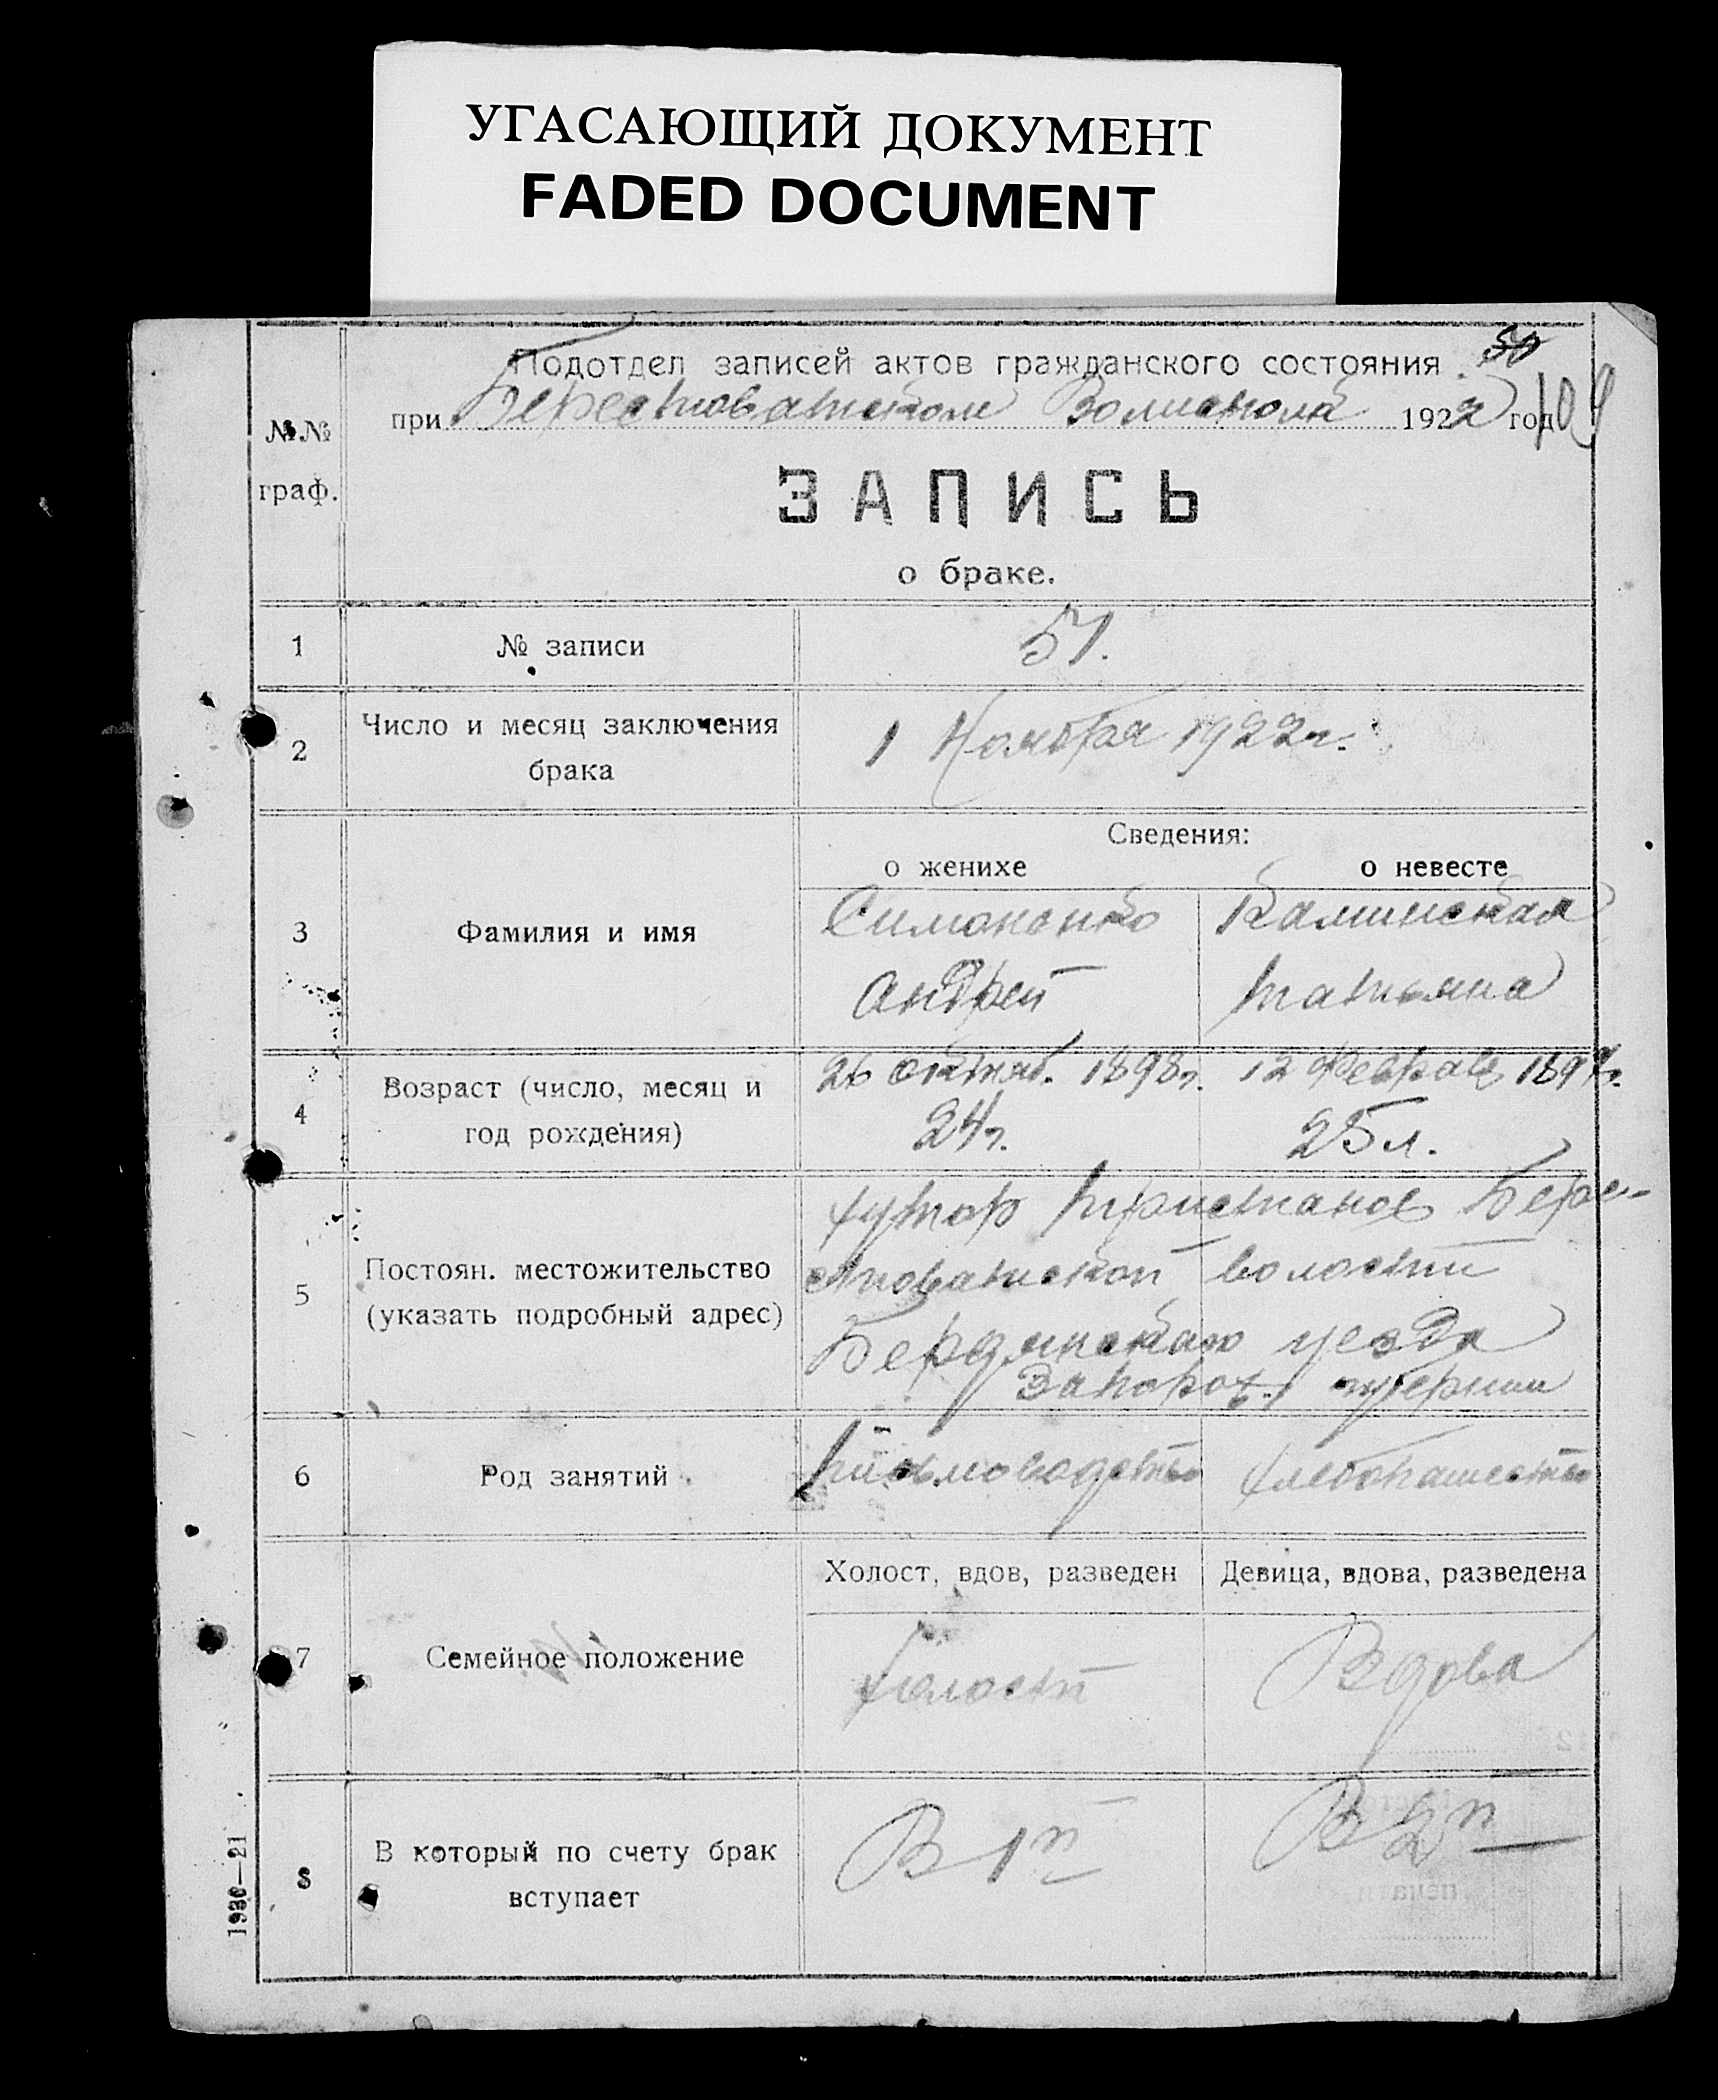 УГАСАЮЩИЙ ДОКУМЕНТ
FADED DOCUMENT
Подотдел записей актов гражданского состояния
50
при Берестоватском Волисполк 1922 год
109
№№ граф.
ЗАПИСЬ
о браке.
1 № записи 51.
2 Число и месяц заключения брака
1 Ноября 1922 г.
Сведения:
о женихе о невесте
3 Фамилия и имя
Симоненко Каминская
Андрей Татьяна
4 Возраст (число, месяц и год рождения)
26 октяб. 1898 г. 12 Феврал 1897 г.
24 г. 25 л.
5 Постоян. местожительство (указать подробный адрес)
хутор Тристанов Бере-
стоватской волости
Бердянского уезда
Запорож. губернии
6 Род занятий
Письмоводство хлебопашество
Холост, вдов, разведен Девица, вдова, разведена
7 Семейное положение
холост Вдова
8 В который по счету брак вступает
В 1й В 2й
1930—21